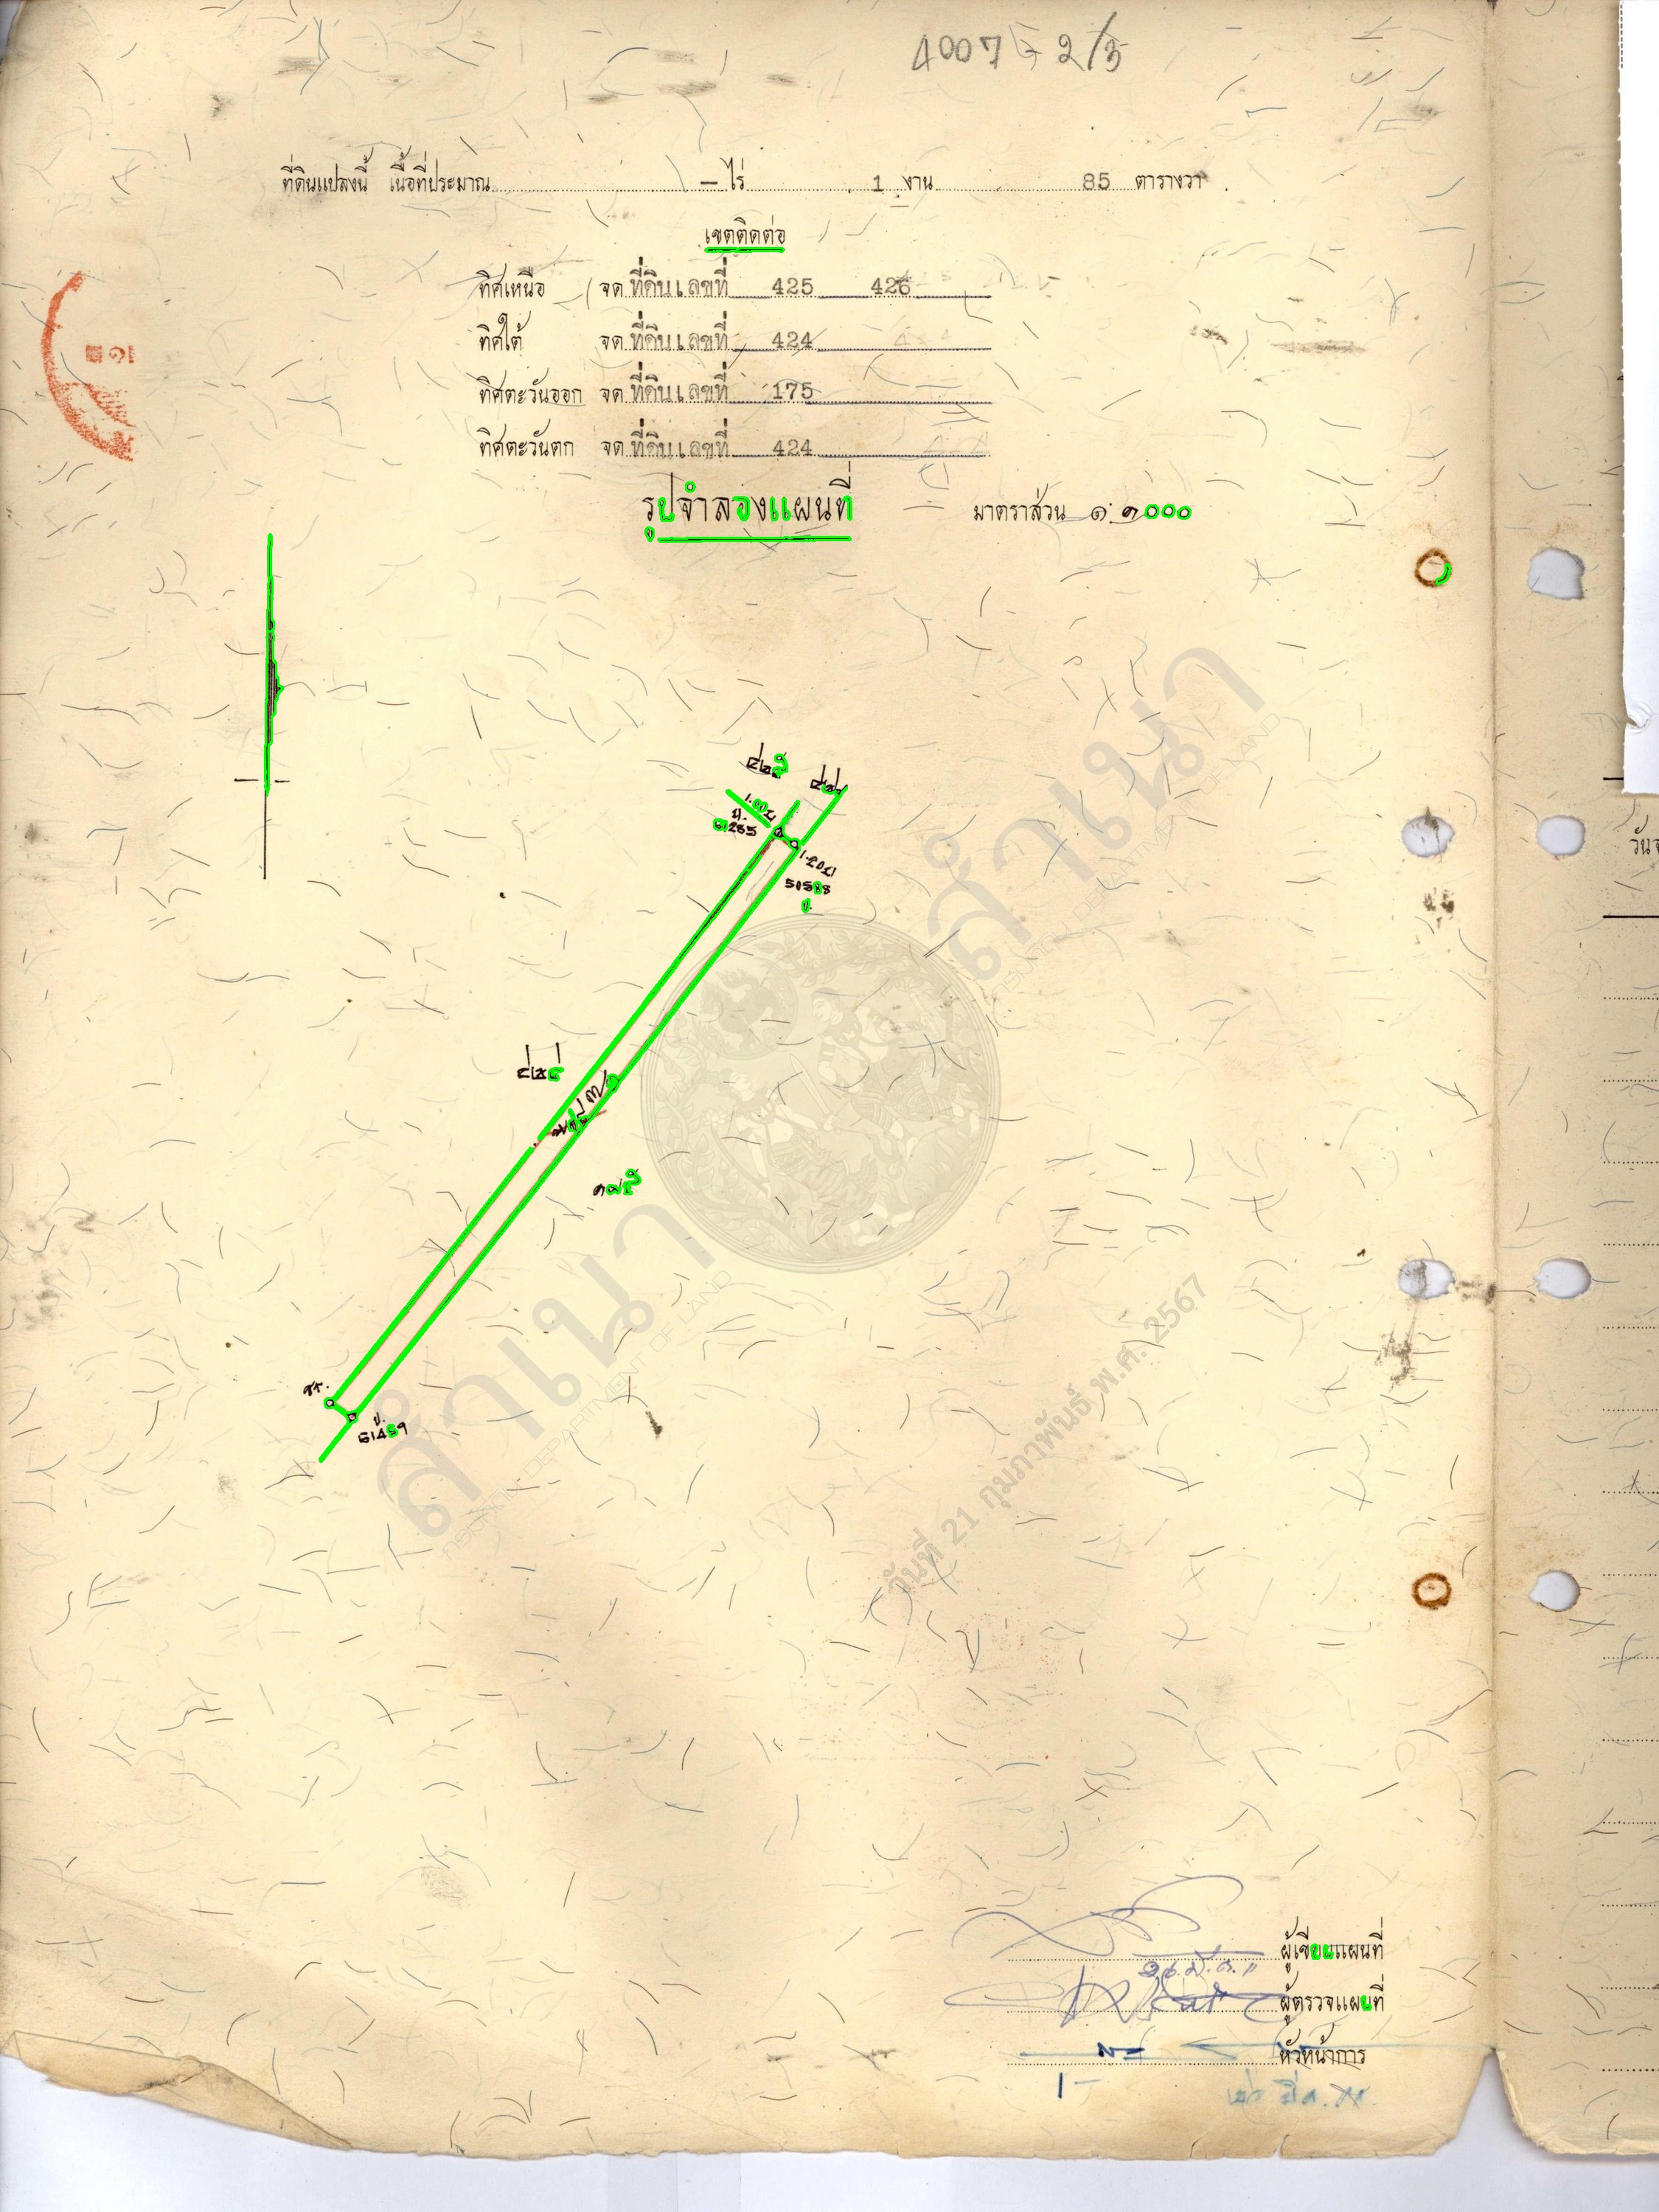 4007 - 2/3
ที่ดินแปลงนี้ เนื้อที่ประมาณ – ไร่ 1 งาน 85 ตารางวา
เขตติดต่อ
ทิศเหนือ จด ที่ดินเลขที่ 425 426
ทิศใต้ จด ที่ดินเลขที่ 424
ทิศตะวันออก จด ที่ดินเลขที่ 175
ทิศตะวันตก จด ที่ดินเลขที่ 424
รูปจำลองแผนที่ มาตราส่วน ๑:๑๐๐๐
๔๒๕
1.00ม
ป.
61285
1.20ม
50588
ป.
๔๒๔
๑๗๕
ป.
61459
สำเนา
กรมที่ดิน DEPARTMENT OF LAND
สำเนา
กรมที่ดิน DEPARTMENT OF LAND
วันที่ 21 กุมภาพันธ์ พ.ศ. 2567
ผู้เขียนแผนที่
ผู้ตรวจแผนที่
หัวหน้าการ